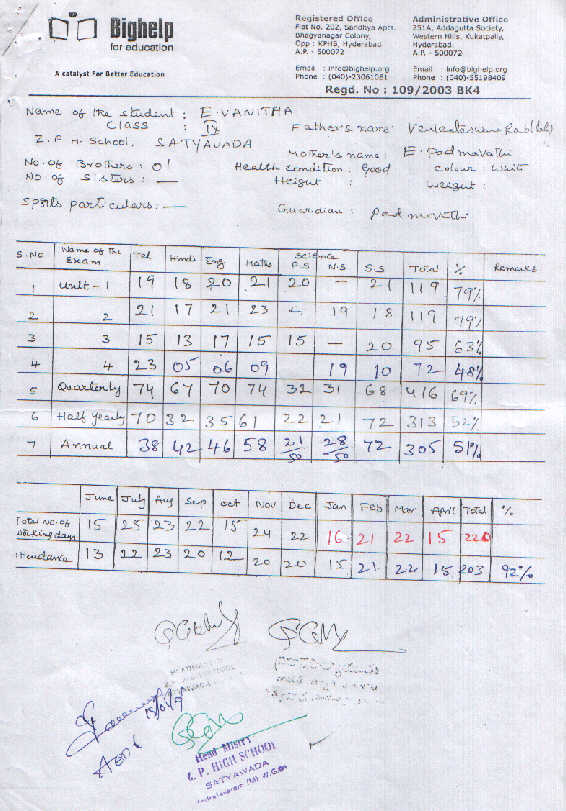 Bighelp
for education
A catalyst For Better Education
Registered Office
Flat No. 202, Sandhya Apts.
Bhagyanagar Colony,
Opp : KPHB, Hyderabad
A.P. - 500072
Email : info@bighelp.org
Phone : (040)-23061081
Administrative Office
251A, Addagutta Society,
Western Hills, Kukatpally,
Hyderabad.
A.P. - 500072
Email : info@bighelp.org
Phone : (040)-55198409
Regd. No : 109/2003 BK4
Name of the student : E VANITHA
Class : IX
Father's name :
Z.P.H. School, SATYAVADA
Mother's name : E. Padmavathi
No. of Brothers : 01
Health condition : Good
Colour : White
No of Sisters : —
Height :
Weight :
Sports particulars : —
Guardian : Padmavathi
S.No Name of the Exam Tel Hindi Eng Maths Science P.S N.S S.S Total % Remarks
1 Unit-1 19 18 20 21 20 — 21 119 79%
2 2 21 17 21 23 - 19 18 119 79%
3 3 15 13 17 15 15 — 20 95 63%
4 4 23 05 06 09 19 10 72 48%
5 Quarterly 74 67 70 74 32 31 68 416 69%
6 Half Yearly 70 32 35 61 22 21 72 313 52%
7 Annual 38 42 46 58 21/50 28/50 72 305 51%
June July Aug Sep Oct Nov Dec Jan Feb Mar April Total %
Total No. of Working days 15 25 23 22 15 24 22 16 21 22 15 220
Attendance 13 22 23 20 12 20 20 15 21 22 15 203 92%
HIGH SCHOOL
SATYAWADA